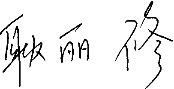 耿丽修